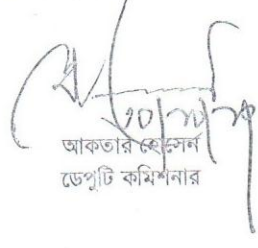 আকতার হোসেন
ডেপুটি কমিশনার